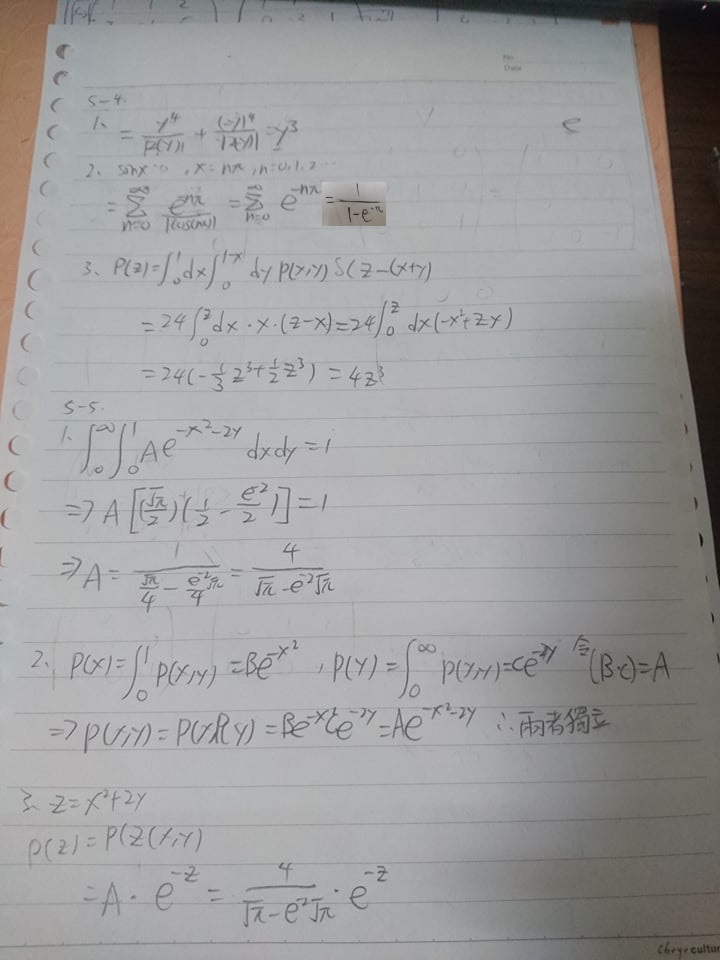 No
Date
5-4.
1. = y⁴/|2(y)| + (-y)⁴/|2(-y)| = y³
e
2. sinx=0, x=nπ, n=0,1,2...
= ∑_{n=0}^{∞} e^{-nπ}/|cos(nπ)| = ∑_{n=0}^{∞} e^{-nπ} = 1/(1-e^{-π})
3. P(z)=∫₀¹dx∫₀^{1-x} dy P(x,y) δ(z-(x+y)
=24∫₀^z dx·x·(z-x)=24∫₀^z dx(-x²+zx)
=24(-1/3 z³+1/2 z³) = 4z³
5-5.
1. ∫₀^∞∫₀¹ Ae^{-x²-2y} dxdy=1
⇒ A[(√π/2)(1/2 - e^{-2}/2)]=1
⇒ A= 1/(√π/4 - e^{-2}√π/4) = 4/(√π-e^{-2}√π)
2. P(x)=∫₀¹P(x,y)=Be^{-x²}, P(y)=∫₀^∞ P(x,y)=Ce^{-2y} 令(B·C)=A
⇒P(x,y)=P(x)P(y)=Be^{-x²}Ce^{-2y}=Ae^{-x²-2y} ∴兩者獨立
3. z=x²+2y
P(z)=P(z(x,y)
=A·e^{-z} = 4/(√π-e^{-2}√π)·e^{-z}